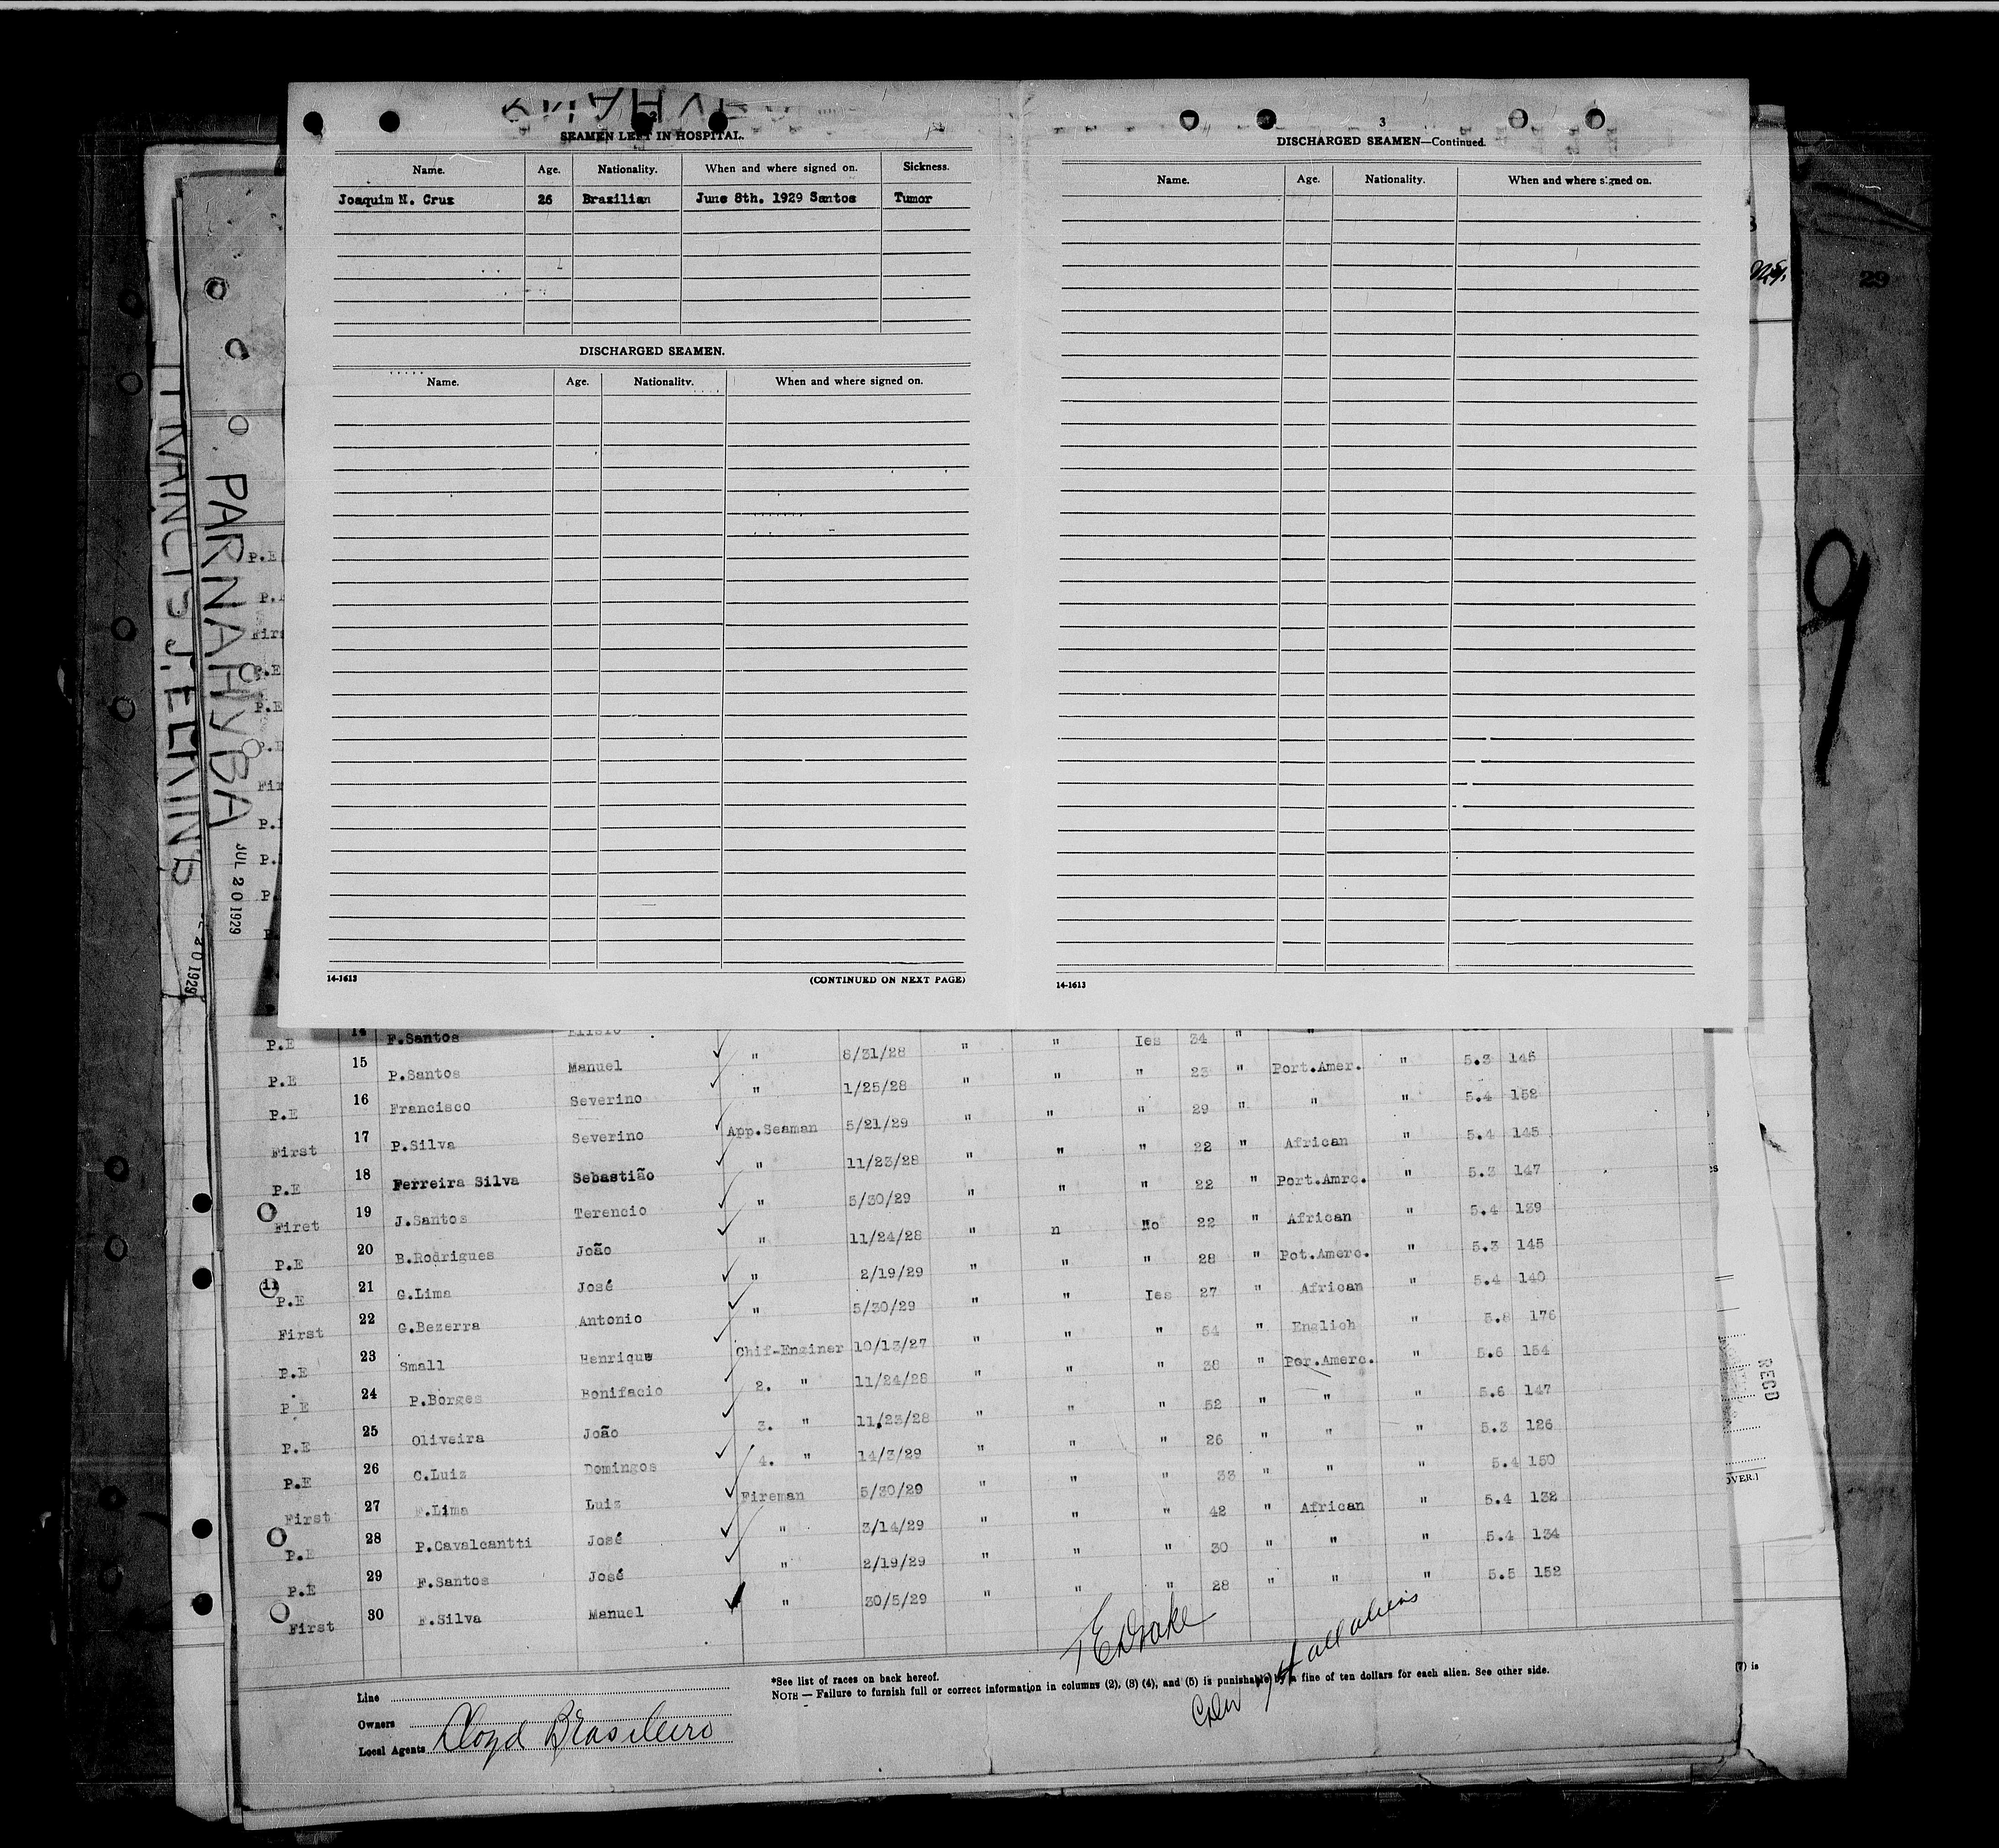 2
SEAMEN LEFT IN HOSPITAL.
Name. Age. Nationality. When and where signed on. Sickness.
Joaquim N. Cruz 26 Brazilian June 8th. 1929 Santos Tumor
DISCHARGED SEAMEN.
Name. Age. Nationality. When and where signed on.
14-1613 (CONTINUED ON NEXT PAGE)
3
DISCHARGED SEAMEN—Continued.
Name. Age. Nationality. When and where signed on.
14-1613
29
9
FRANCIS J. ELKINS
PARNAHYBA
JUL 20 1929
20 1929
P.E
P.E
P.E
P.E 14 F.Santos Elisio
P.E 15 P.Santos Manuel ✓ " 8/31/28 " " Ies 34 " "
P.E 16 Francisco Severino ✓ " 1/25/28 " " " 23 " Port.Amer. " 5.3 145
First 17 P.Silva Severino ✓ App.Seaman 5/21/29 " " " 29 " " " 5.4 152
P.E 18 Ferreira Silva Sebastião ✓ " 11/23/28 " " " 22 " African " 5.4 145
First 19 J.Santos Terencio ✓ " 5/30/29 " " " 22 " Port.Amrc. " 5.3 147
P.E 20 B.Rodrigues João ✓ " 11/24/28 " n No 22 " African " 5.4 139
11 P.E 21 G.Lima José ✓ " 2/19/29 " " " 28 " Pot.Amerc. " 5.3 145
First 22 G.Bezerra Antonio ✓ " 5/30/29 " " Ies 27 " African " 5.4 140
P.E 23 Small Henrique ✓ Chif-Enginer 10/13/27 " " " 54 " English " 5.8 176
P E 24 P.Borges Bonifacio ✓ 2. " 11/24/28 " " " 38 " Por.Amerc. " 5.6 154
P.E 25 Oliveira João ✓ 3. " 11.23/28 " " " 52 " " " 5.6 147
P.E 26 C.Luiz Domingos ✓ 4. " 14/3/29 " " " 26 " " " 5.3 126
First 27 F.Lima Luiz ✓ Fireman 5/30/29 " " " 33 " " " 5.4 150
P.E 28 P.Cavalcantti José ✓ " 3/14/29 " " " 42 " African " 5.4 132
P.E 29 F.Santos José ✓ " 2/19/29 " " " 30 " " " 5.4 134
First 30 F.Silva Manuel ✓ " 30/5/29 " " " 28 " " " 5.5 152
T E Drake
all aliens
*See list of races on back hereof.
NOTE — Failure to furnish full or correct information in columns (2), (3) (4), and (5) is punishable by a fine of ten dollars for each alien. See other side.
Line
Owners
Local Agents Lloyd Brasileiro
RECD
OVER.]
(7) is